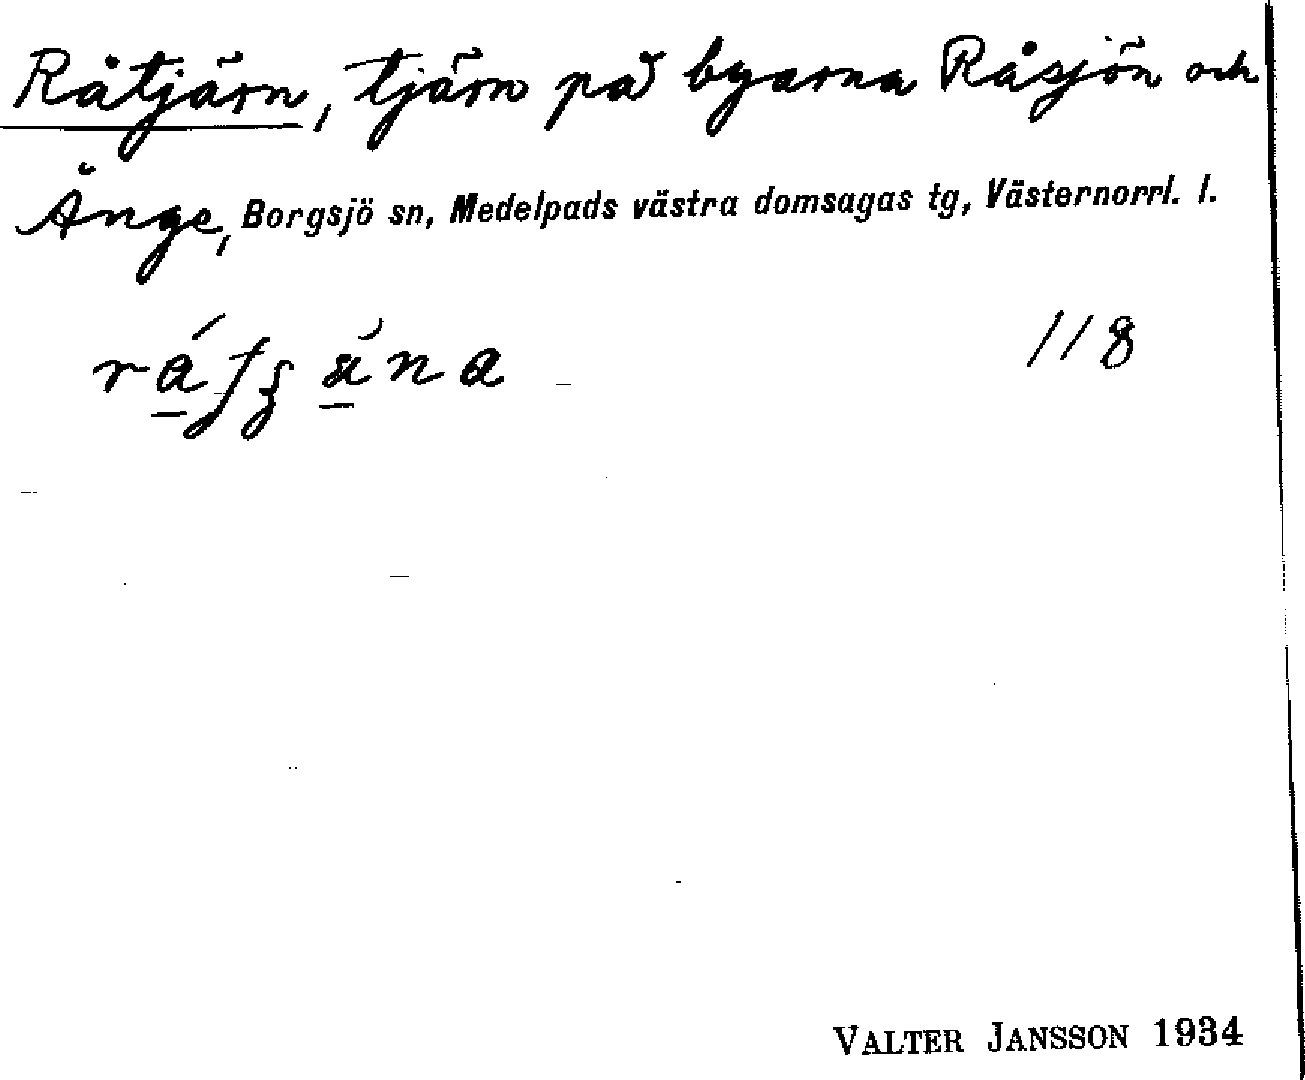 Råtjärn, tjärn på byarna Råsjön och
Ånge, Borgsjö sn, Medelpads västra domsagas tg, Västernorrl. l.
118
VALTER JANSSON 1934